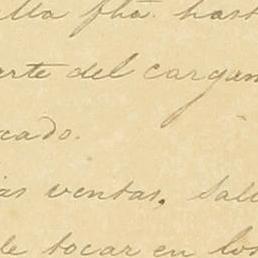 fha. hast
arte del cargam
cado.
as ventas. Sal
de tocar en los